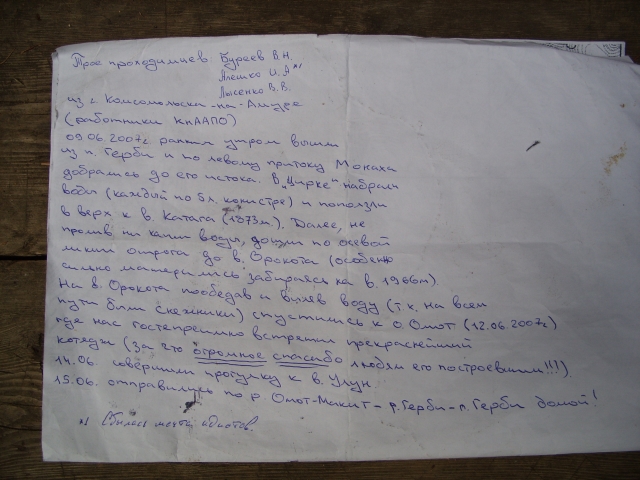 Трое проходимцев Буреев В.Н.
Плешко И.А.
Лысенко В.В.
из г. Комсомольска-на-Амуре
(работники КнААПО)
09.06.2007г. ранним утром вышли
из п. Герби и по левому притоку Монаха
добрались до его истока. В „Цирке“ набрали
воды (каждый по 5л. канистре) и поползли
в верх к в. Катага (1873м). Далее, не
пролив ни капли воды, дошли по осевой
линии отрога до в. Орокота (особенно
сильно матерились забираясь на в. 1966м).
На в. Орокота пообедав и вылив воду (т.к. на всем
пути были снежники) спустились к о. Омот (12.06.2007г)
где нас гостеприимно встретил прекраснейший
котедж (за что огромное спасибо людям его построевшим!!!)
14.06. совершили прогулку к в. Улун.
15.06. отправились по р. Омот-Макит - р. Герби - п. Герби домой!
Сбылась мечта идиотов.